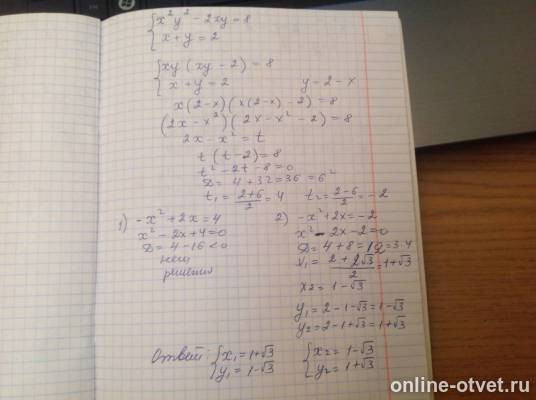 { x²y² - 2xy = 8
{ x + y = 2
{ xy (xy - 2) = 8
{ x + y = 2 y = 2 - x
x(2-x)(x(2-x) - 2) = 8
(2x - x²)(2x - x² - 2) = 8
2x - x² = t
t (t - 2) = 8
t² - 2t - 8 = 0
D = 4 + 32 = 36 = 6²
t₁ = (2+6)/2 = 4 t₂ = (2-6)/2 = -2
1) -x² + 2x = 4
x² - 2x + 4 = 0
D = 4 - 16 < 0
нет
решения
2) -x² + 2x = -2
x² - 2x - 2 = 0
D = 4 + 8 = 12 = 3·4
x₁ = (2 + 2√3)/2 = 1+√3
x₂ = 1-√3
y₁ = 2-1-√3 = 1-√3
y₂ = 2-1+√3 = 1+√3
Ответ: { x₁ = 1+√3 { x₂ = 1-√3
{ y₁ = 1-√3 { y₂ = 1+√3
online-otvet.ru